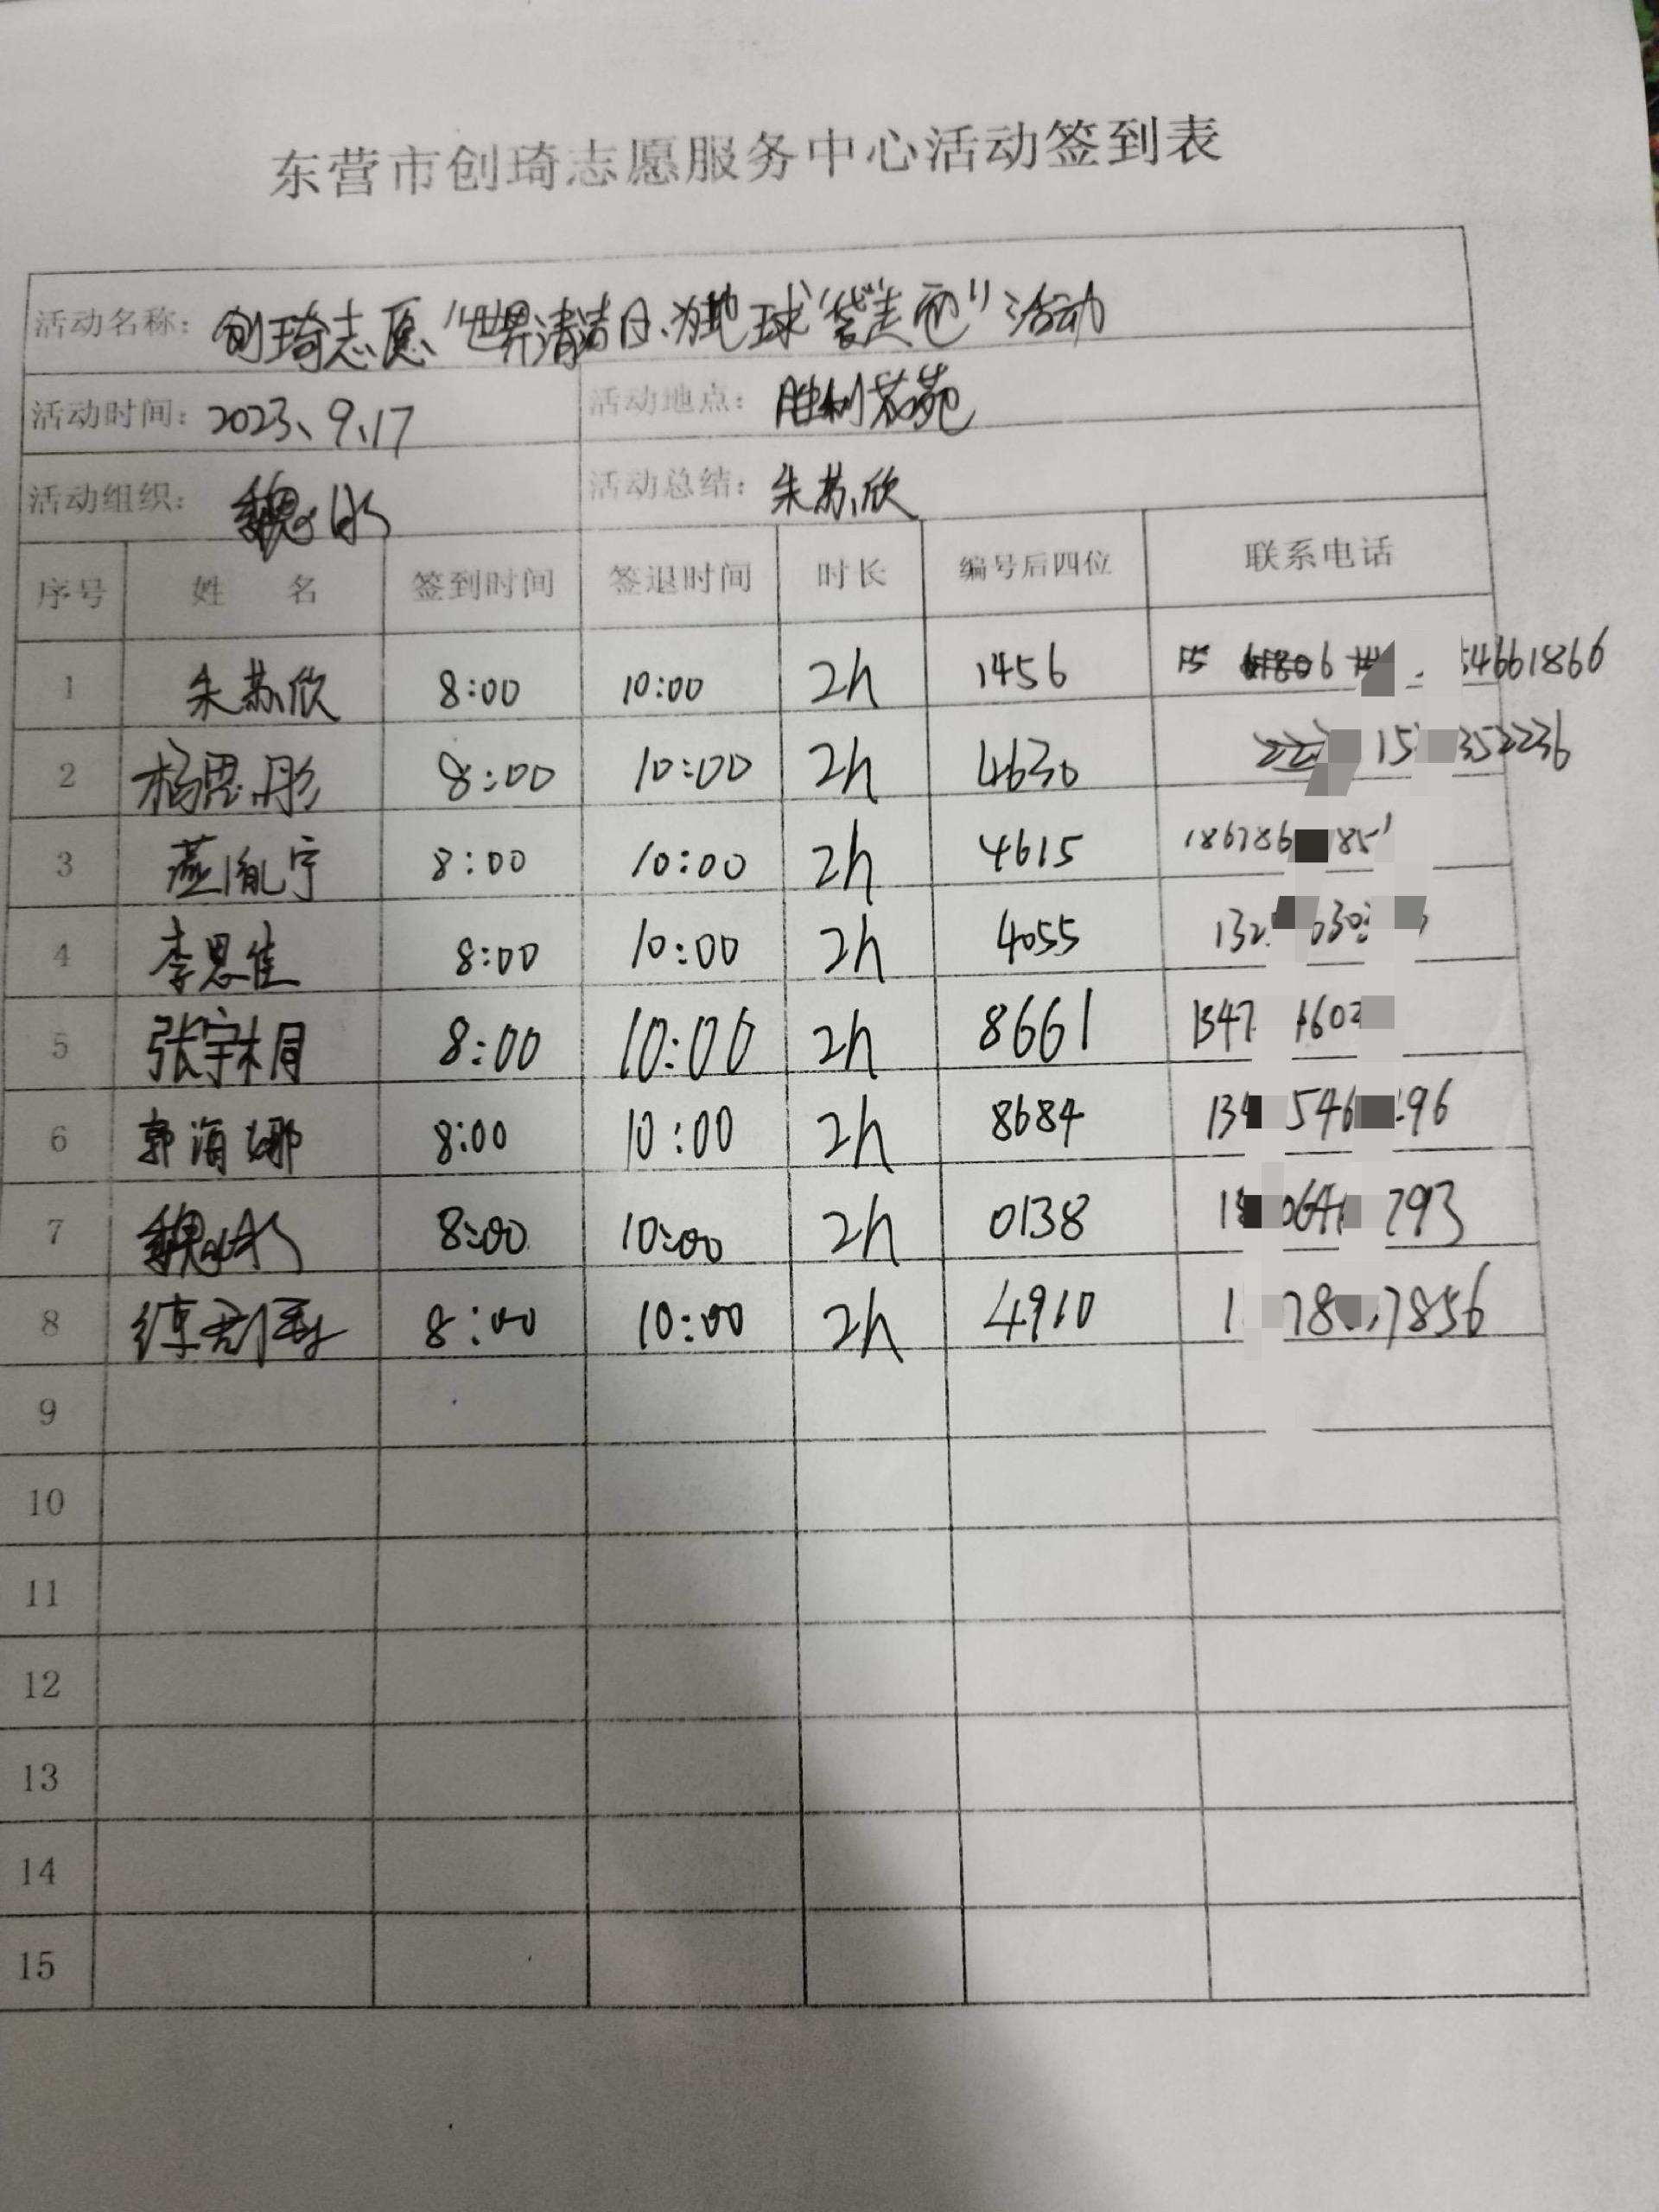 东营市创琦志愿服务中心活动签到表
活动名称：创琦志愿“世界清洁日、为地球“袋走它”活动
活动时间：2023、9、17 活动地点：胜利花苑
活动组织：魏 活动总结：朱苏欣
序号 姓 名 签到时间 签退时间 时长 编号后四位 联系电话
1 朱苏欣 8:00 10:00 2h 1456 54661866
2 杨思彤 8:00 10:00 2h 4630 15 352236
3 燕胤宁 8:00 10:00 2h 4615 186786 185
4 李思佳 8:00 10:00 2h 4055 132 630
5 张宇桐 8:00 10:00 2h 8661 1347 1602
6 郭海娜 8:00 10:00 2h 8684 134 546 96
7 魏 8:00 10:00 2h 0138 1 064 293
8 8:00 10:00 2h 4910 1 78 7856
9
10
11
12
13
14
15